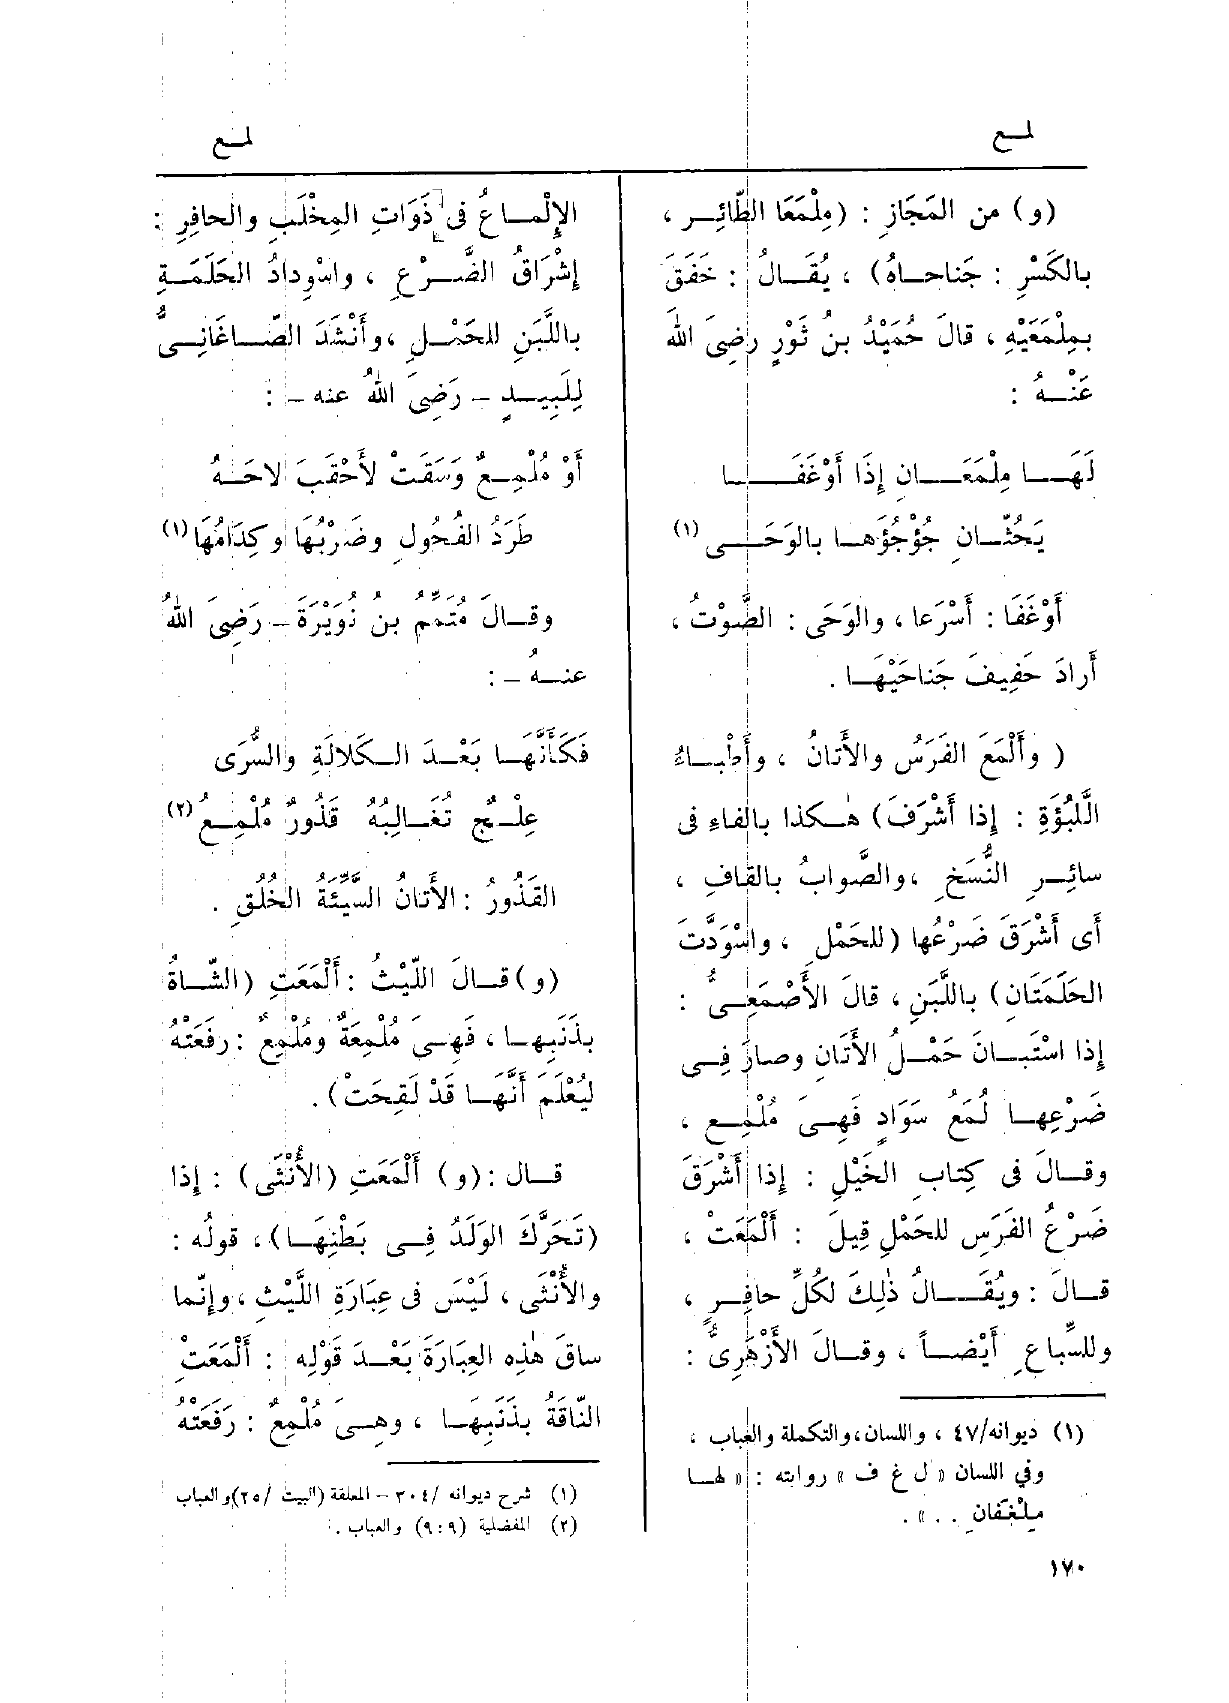 لمـع
لمـع
(و) من المَجَازِ : (مِلْمَعَا الطّائِـرِ ،
بالكَسْرِ : جَناحـاهُ) ، يُقَـالُ : خَفَقَ
بمِلْمَعَيْهِ ، قالَ حُمَيْدُ بنُ ثَوْرٍ رضِىَ اللهُ
عَنْـهُ :
لَهَـا مِلْمَعَـانِ إِذَا أَوْغَفَـا
يَحُثّـانِ جُؤْجُؤَهـا بالوَحَـى (١)
أَوْغَفَا : أَسْرَعا ، والوَحَى : الصَّوْتُ ،
أَرادَ حَفِيفَ جَناحَيْهَـا .
( وأَلْمَعَ الفَرَسُ والأَتانُ ، وأَطْبـاءُ
اللَّبُؤَةِ : إِذا أَشْرَفَ) هٰـكذا بالفاءِ فى
سائِـرِ النُّسَخِ ، والصَّوابُ بالقافِ ،
أَى أَشْرَقَ ضَرْعُها (للحَمْلِ ، واسْوَدَّت
الحَلَمَتَانِ) باللَّبَنِ ، قالَ الأَصْمَعِـىُّ :
إِذا اسْتَبـانَ حَمْـلُ الأَتَانِ وصارَ فِـى
ضَرْعِهـا لُمَعُ سَوَادٍ فَهِـىَ مُلْمِـع ،
وقـالَ فى كِتابِ الخَيْلِ : إِذا أَشْرَقَ
ضَرْعُ الفَرَسِ للحَمْلِ قِيلَ : أَلْمَعَتْ ،
قـالَ : ويُقَـالُ ذٰلِكَ لكُلِّ حافِـرٍ ،
وللسِّباعِ أَيْضـاً ، وقـالَ الأَزْهَرِىُّ :
(١) ديوانه/٤٧ ، واللسان،والتكملة والعباب ،
وفي اللسان « ل غ ف » روايته : « لهـا
مـِلْغَفان . . » .
الإِلْمـاعُ فى ذَوَاتِ المِخْلَبِ والحافِرِ :
إِشْرَاقُ الضَّـرْعِ ، واسْوِدادُ الحَلَمَـةِ
باللَّبَنِ للحَمْـلِ ،وأَنْشَدَ الصّـاغَانِـىُّ
لِلَبِيـدٍ – رَضِىَ اللهُ عنه – :
أَوْ مُلْمِـعٌ وَسَقَتْ لأَحْقَبَ لاحَـهُ
طَرَدُ الفُحُولِ وضَرْبُهَا وكِدَامُهَا (١)
وقـالَ مُتَمِّمُ بنُ نُوَيْرَةَ – رَضِىَ اللهُ
عنـهُ – :
فَكَأَنَّهـا بَعْـدَ الـكَلالَةِ والسُّرَى
عِلْـجٌ تُغَـالِبُهُ قَذُورٌ مُلْمِـعُ (٢)
القَذُورُ : الأَتانُ السَّيِّئَةُ الخُلُقِ .
(و) قـالَ اللّيْثُ : أَلْمَعَتِ (الشّـاةُ
بذَنَبِهـا ، فَهِـىَ مُلْمِعَةٌ ومُلْمِعٌ : رفَعَتْهُ
ليُعْلَمَ أَنَّهَـا قَدْ لَقِحَتْ) .
قـال : (و) أَلْمَعَتِ (الأُنْثَى) : إِذا
(تَحَرَّكَ الوَلَدُ فِـى بَطْنِهَـا) ، قولُه :
والأُنْثَى ، لَيْسَ فى عِبَارَةِ اللَّيْثِ ، وإِنّما
ساقَ هٰذِه العِبَارَةَ بَعْـدَ قَوْلِه : أَلْمَعَتْ
النّاقَةُ بذَنَبِهَـا ، وهِـىَ مُلْمِعٌ : رَفَعَتْهُ
(١) شرح ديوانه /٣٠٤ – المعلقة (البيت /٢٥)والعباب
(٢) المفضلية (٩ : ٩) والعباب .
١٧٠